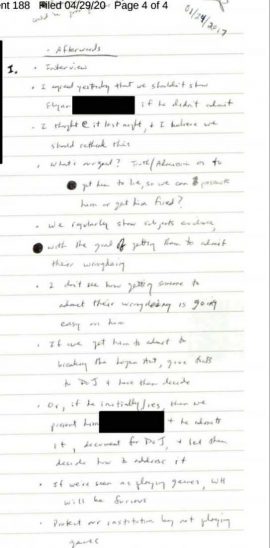 nt 188 Filed 04/29/20 Page 4 of 4
01/24/2017
- Afterwards
I. • Interview
• I agreed yesterday that we shouldn't show
Flynn if he didn't admit
• I thought @ it last night, + I believe we
should rethink this
• What's our goal? Truth/Admission or to
get him to lie, so we can prosecute
him or get him fired?
• We regularly show subjects evidence,
with the goal of getting them to admit
their wrongdoing
• I don't see how getting someone to
admit their wrongdoing is going
easy on him
• If we get him to admit to
breaking the Logan Act, give facts
to DoJ + have them decide
• Or, if he initially lies, then we
present him + he admits
it, document for DoJ, + let them
decide how to address it
• If we're seen as playing games, WH
will be furious
• Protect our institution by not playing
games